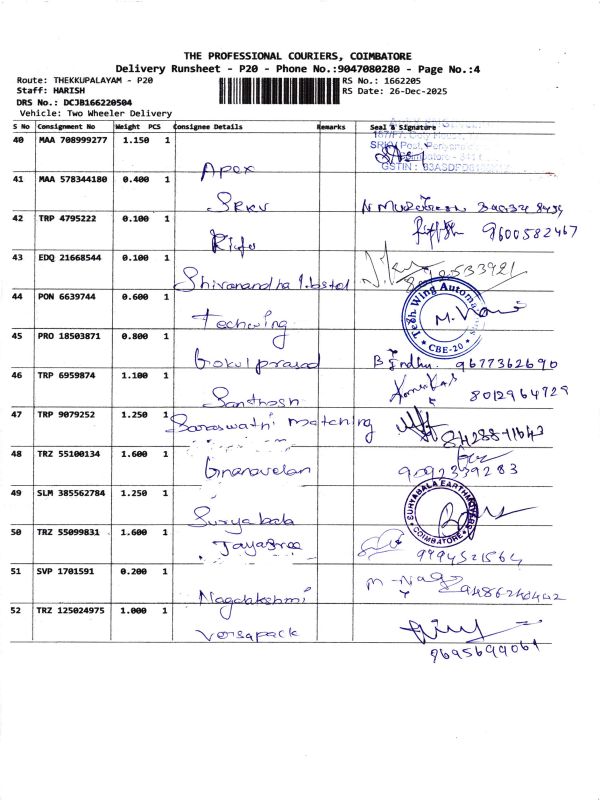 THE PROFESSIONAL COURIERS, COIMBATORE
Delivery Runsheet - P20 - Phone No.:9047080280 - Page No.:4
Route: THEKKUPALAYAM - P20
RS No.: 1662205
Staff: HARISH
RS Date: 26-Dec-2025
DRS No.: DCJB166220504
Vehicle: Two Wheeler Delivery
S No Consignment No Weight PCS Consignee Details Remarks Seal & Signature
40 MAA 708999277 1.150 1 Apex
SRKV Post, Periyana
GSTIN :
41 MAA 578344180 0.400 1 SRKV
42 TRP 4795222 0.100 1 9600582467
43 EDQ 21668544 0.100 1 Shivanandha
44 PON 6639744 0.600 1 Techwing
Tech Wing Automa
M.
CBE-20
45 PRO 18503871 0.800 1 Gokulprasad B Indhu. 9677362690
46 TRP 6959874 1.100 1 Santhosh 8012964729
47 TRP 9079252 1.250 1 Saraswathi matching
48 TRZ 55100134 1.600 1 Gnanavelan 9092339283
49 SLM 385562784 1.250 1 Suryabala
SURYABALA EARTHMOVERS
COIMBATORE
50 TRZ 55099831 1.600 1 Jayasree 9994521564
51 SVP 1701591 0.200 1 Nagalakshmi M-Naga
9486240442
52 TRZ 125024975 1.000 1 Versapack
9695699061